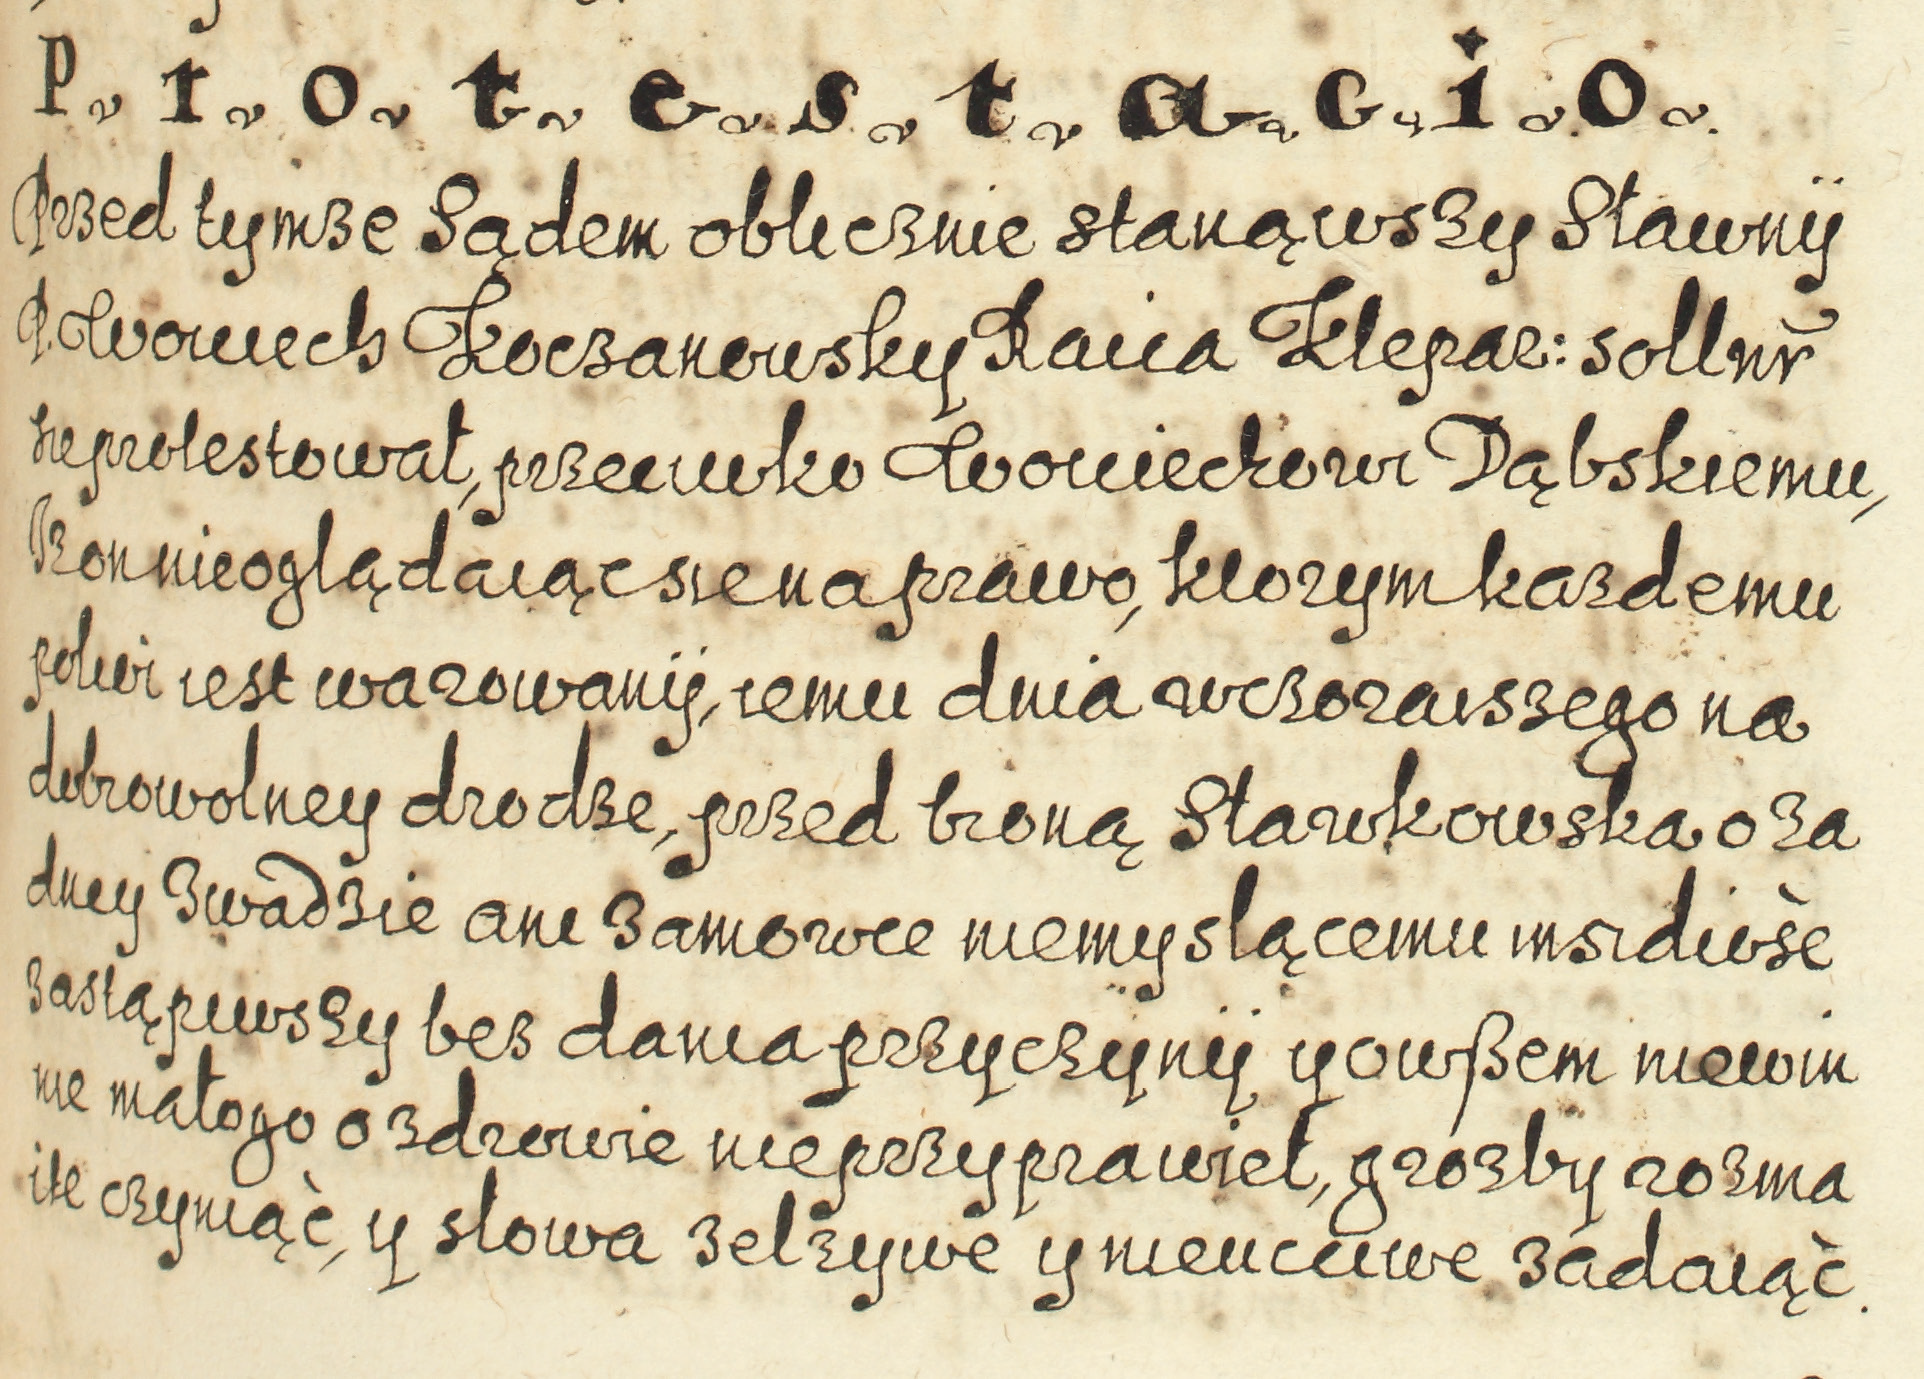 P. r. o. t. e. s. t. a. c. i. o.
Przed tymze Sądem oblicznie stanąwszy Sławnÿ
P. Woiciech Koczanowsky Raica Klepar: sollnr̃
sie protestował, przeciwko Woiciechowi Dąbskiemu,
Iz on nieoglądaiąc sie na prawo, ktorym kazdemu
pokoi iest warowanÿ, iemu dnia wczoraiszego na
dobrowolney drodze, przed broną Sławkowska o za
dney zwadzie ani zamowce niemyslącemu insidiosè
zastąpiwszy bez dania przyczÿnÿ y owßem niewin
nie małogo o zdrowie nieprzyprawieł, grozby rozma
ite czyniąc, y słowa zelzywe y nieucciwe zadaiąc.